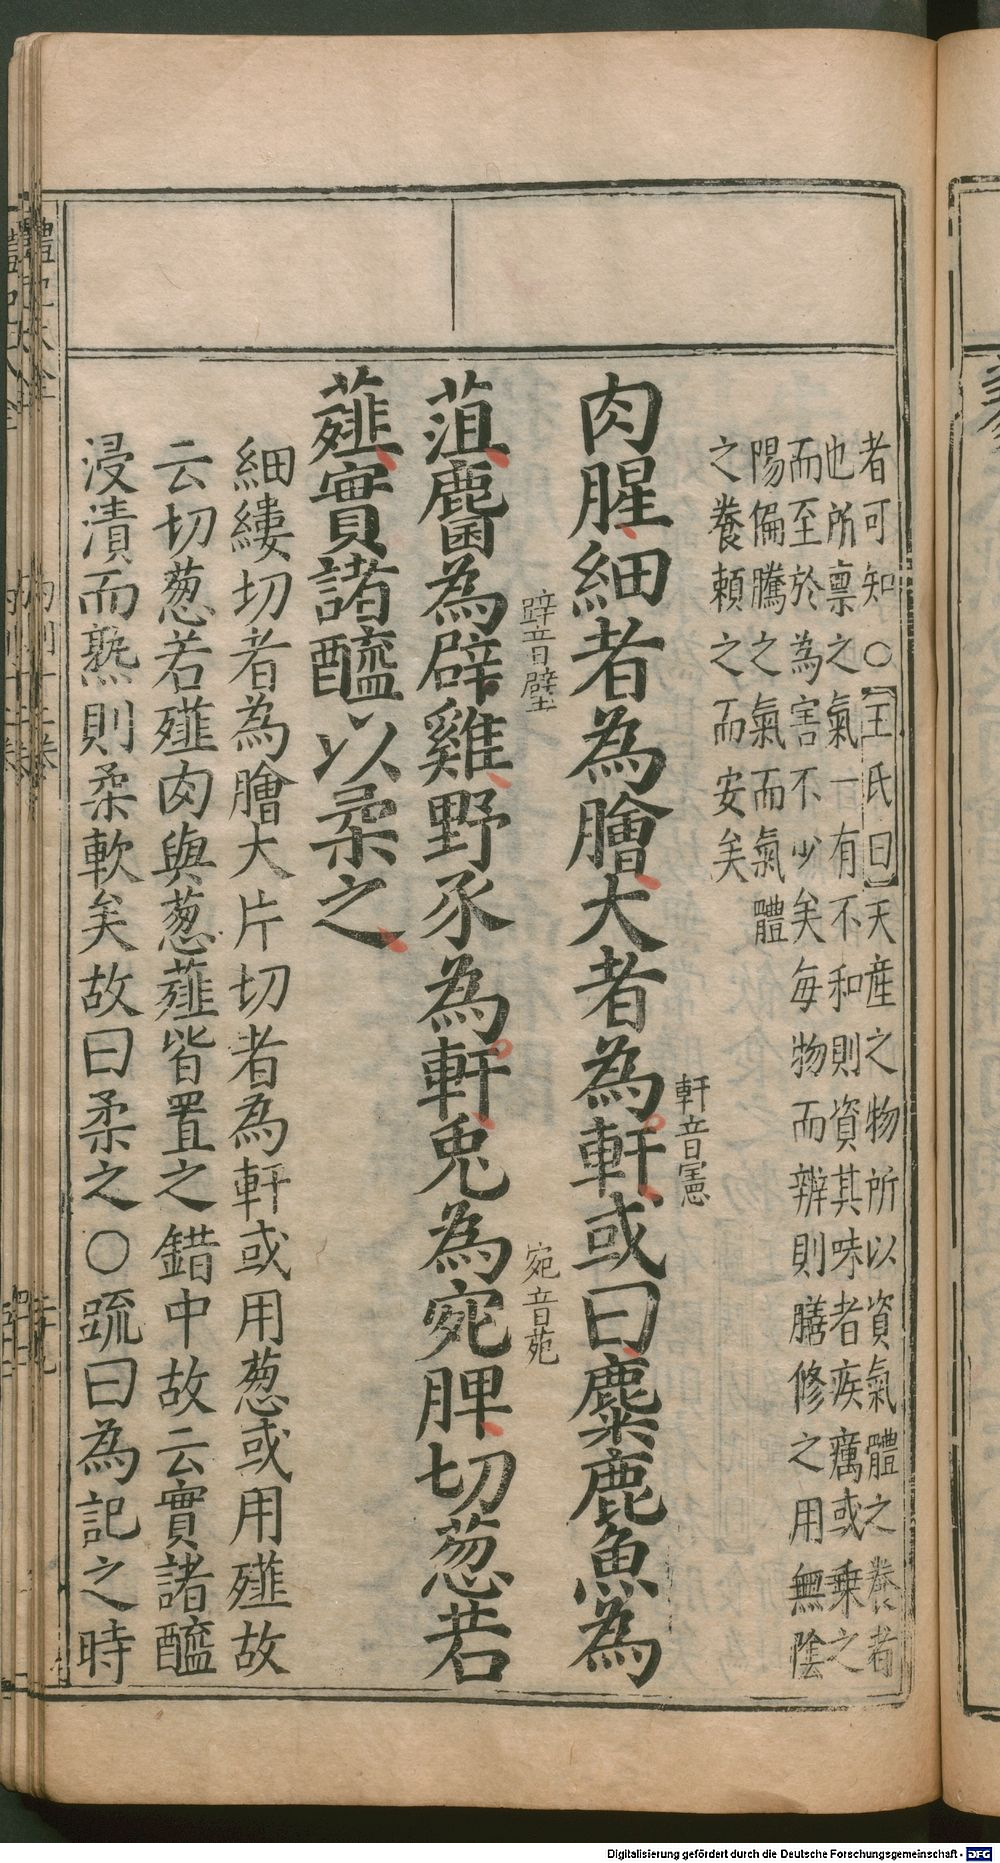 者可知○王氏曰天產之物所以資氣體之養者
也所禀之氣一有不和則資其味者疾癘或乗之
而至於為害不少矣毎物而辨則膳修之用無陰
陽偏騰之氣而氣體
之養頼之而安矣
軒音憲
肉腥細者為膾大者為軒或曰麋鹿魚為
辟音壁 宛音苑
菹麕為辟雞野豕為軒兎為宛脾切葱若
薤實諸醯以柔之
細縷切者為膾大片切者為軒或用葱或用薤故
云切葱若薤肉與葱薤皆置之錯中故云實諸醯
浸漬而熟則柔軟矣故曰柔之○疏曰為記之時
Digitalisierung gefördert durch die Deutsche Forschungsgemeinschaft - DFG